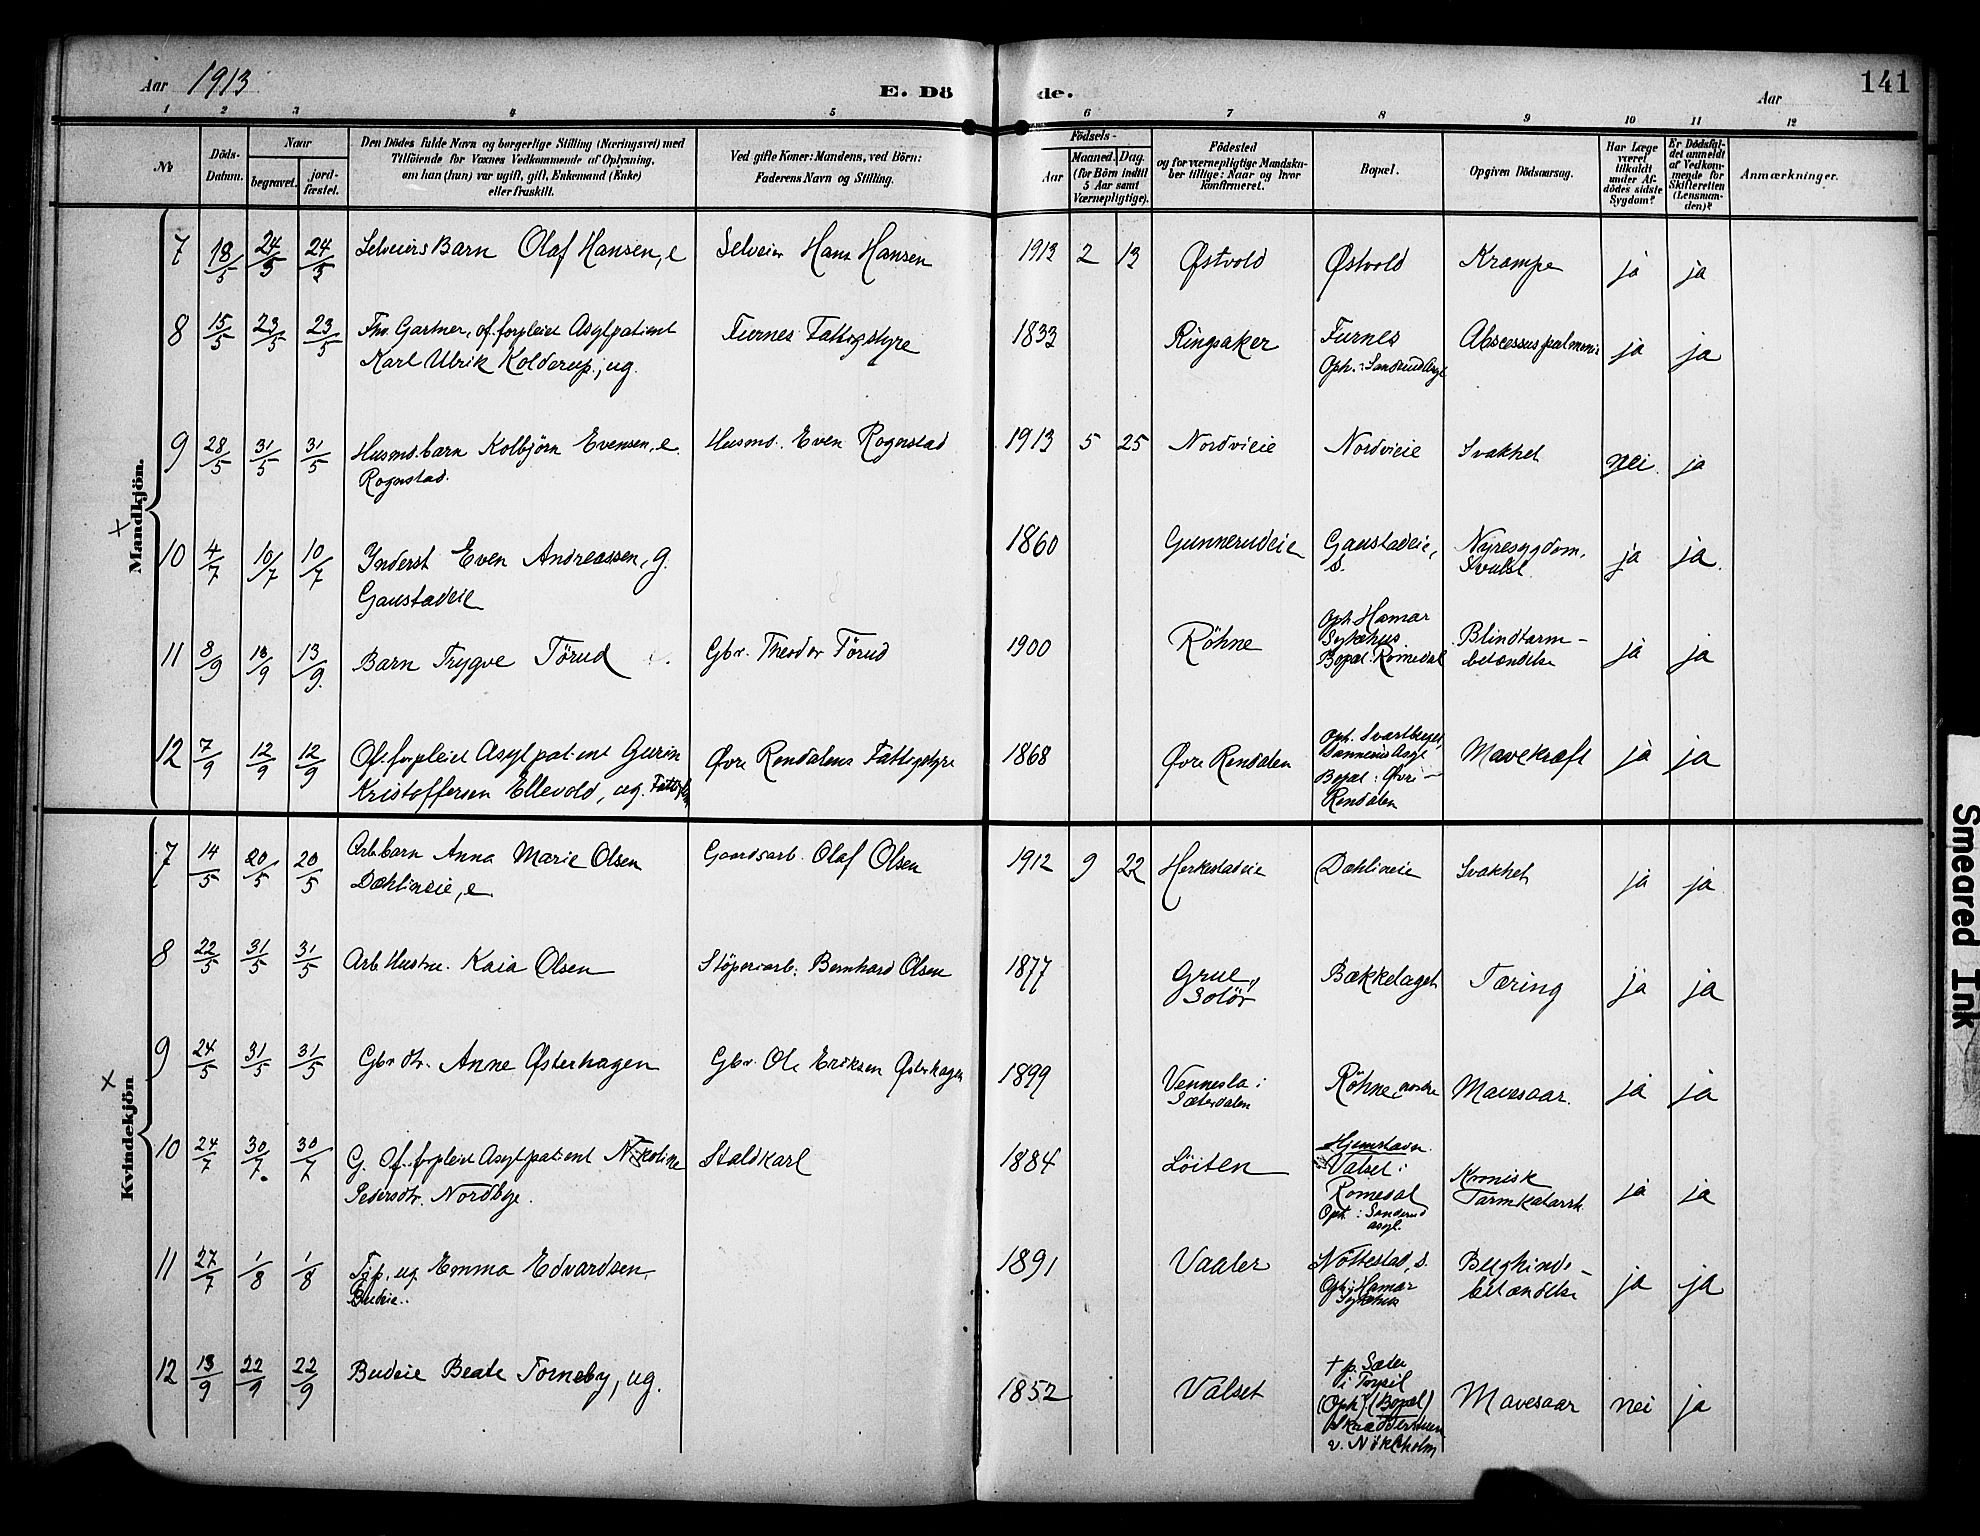 Aar 1913
E. Dö de.
Aar
141
1 2 3 4 5 6 7 8 9 10 11 12
No
Döds-
Datum.
Naar
begravet.
jord-
fæstet.
Den Dödes fulde Navn og borgerlige Stilling (Næringsvei) med
Tilföiende for Voxnes Vedkommende af Oplysning,
om han (hun) var ugift, gift, Enkemand (Enke)
eller fraskilt.
Ved gifte Koner: Mandens, ved Börn:
Faderens Navn og Stilling.
Födsels-
Aar
Maaned. Dag.
(for Börn indtil
5 Aar samt
Værnepligtige).
Födested
og for værnepligtige Mandska-
ber tillige: Naar og hvor
konfirmeret.
Bopæl.
Opgiven Dödsaarsag.
Har Læge
været
tilkaldt
under Af-
dödes sidste
Sygdom?
Er Dödsfal-
det anmeldt
af Vedkom-
mende for
Skifteretten
(Lensman-
den)?
Anmærkninger.
× Mandkjön.
7 18/5 24/5 24/5 Selveiers Barn Olaf Hansen, e Selveier Hans Hansen 1913 2 13 Østvold Østvold Krampe ja ja
8 15/5 23/5 23/5 Fhv. Gartner, of. forpleiet Asylpatient
Karl Ulrik Kolderup, ug.
Furnes Fattigstyre 1833 Ringsaker Furnes
Oph.: Sanderud Asyl
Abscessus pulmonis ja ja
9 28/5 31/5 31/5 Husmd.barn Kolbjörn Evensen, e.
Rogerstad.
Husmd. Even Rogerstad 1913 5 25 Nordvieie Nordvieie Svakhet nei. ja
10 4/7 10/7 10/7 Inderst Even Andreassen, g.
Gaustadeie
1860 Gunnerudeie Gaustadeie,
s.
Nyresygdom.
Svulst. ja ja.
11 8/9 13/9 13/9. Barn Trygve Törud Gbr. Theodor Törud 1900 Röhne
Oph. Hamar
Sykehus
Bopæl. Romedal
Blindtarm-
betændelse ja ja
12 7/9 12/9 12/9 Of. forpleiet Asylpatient Gurin
Kristoffersen Ellevold, ug.
Øvre Rendalens Fattigstyre 1868 Øvre Rendalen
Oph. Svartberget,
Bopæl: Øvre-
Rendalen
Mavekræft ja ja
× Kvindekjön
7 14/5 20/5 20/5 Arb.barn Anna Marie Olsen
Dæhlineie, e
Gaardsarb. Olaf Olsen 1912 9 22 Herkestadeie Dæhlineie Svakhet ja ja
8 22/5 31/5 31/5 Arb. Hustru. Kaia Olsen Stöperiarb. Bernhard Olsen 1877 Grue,
Solör
Bækkelaget Tæring ja ja
9 24/5 31/5 31/5 Gbr. dtr. Anne Østerhagen Gbr. Ole Eriksen Østerhagen 1899 Vennesla i
Sæterdalen
Röhne, nordre Mavesaar. ja ja
10 24/7 30/7. 30/7 G. Of. forpleiet Asylpatient Nikoline
Pedersdtr. Nordbye.
Staldkarl 1884 Löiten
Hjemstavn.
Valset i
Romedal
Oph.: Sanderud
asyl.
Kronisk
Tarmkatarrh. ja ja
11 27/7 1/8 1/8 Tjp. ug. Emma Edvardsen.
Budeie..
1891 Vaaler Nöttestad, s.
Oph. i Hamar
Sykehus
Bughinde-
betændelse ja ja
12 13/9 22/9 22/9 Budeie Beate Torneby, ug.
1852 Valset
† p. Sæter
i Trysil
(Oph.) (Bopæl)
Skrædderstuen
v. Nökleholm
Mavesaar nei ja
Smeared Ink